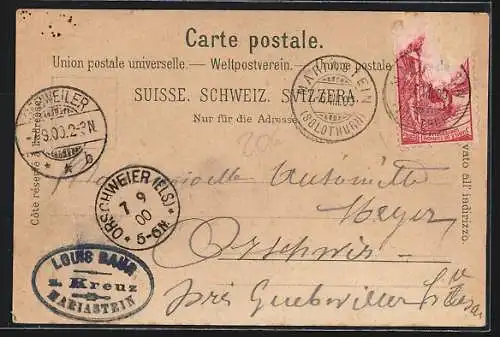 Carte postale.
Union postale universelle. — Weltpostverein. — Unione postale
SUISSE. SCHWEIZ. SVIZZERA.
Nur für die Adresse.
Côté réservé à l'adresse.
vato all' indirizzo.
MARIASTEIN
(SOLOTHURN)
9.00.2-3N
ORSCHWEIER (ELS)
7 9
00
5-6N
Mademoiselle Antoinette
Meyer
Orschwir
près Guebwiller
LOUIS
z. Kreuz
MARIASTEIN